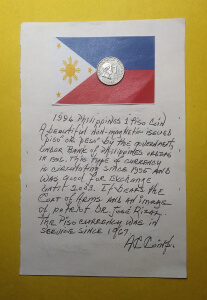 1996 Philippines 1 Piso Coin
A beautiful non-magnetic issued
"piso" or "peso" by the government,
under Bank of Philippines
in 1996. This type of currency
is circulating since 1995 and
was good for exchange
until 2003. It bears the
Coat of Arms and an image
of patriot Dr. José Rizal.
The Piso currency was in
service since 1967.